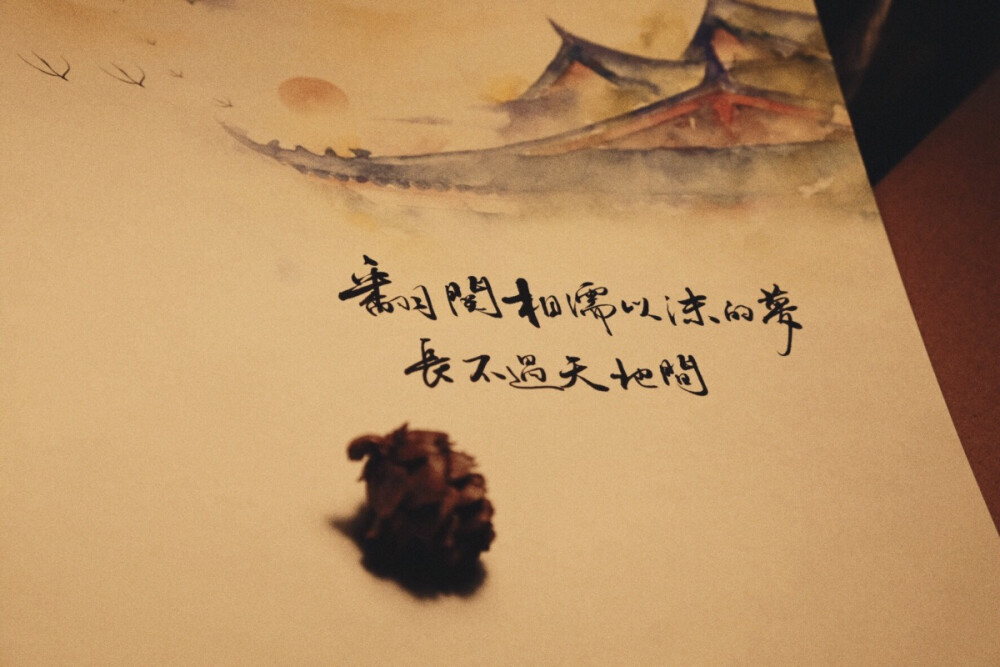 翻閱相濡以沫的夢
長不過天地間